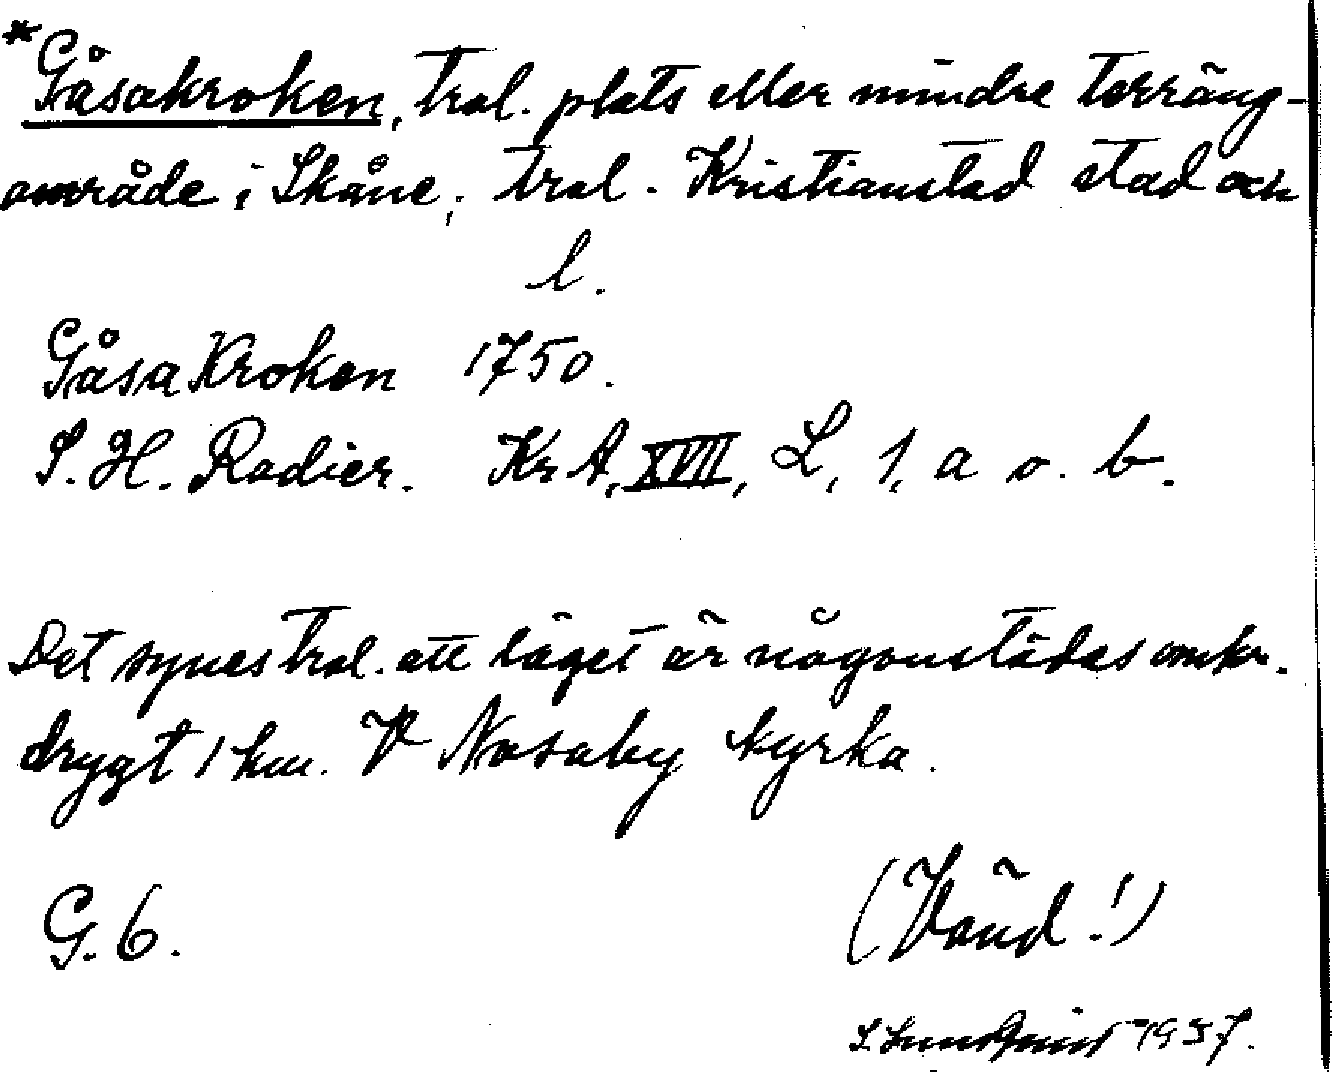 *Gåsakroken, trol. plats eller mindre terräng-
område i Skåne, trol. Kristianstad stad och
l.
GåsaKroken 1750.
S. H. Radier. KrA, XVII, L, 1, a o. b.
Det synes trol. att läget är någonstädes omkr.
drygt 1 km. V Nosaby kyrka.
G. 6.
(Vänd!)
S. Lundqvist 1957.